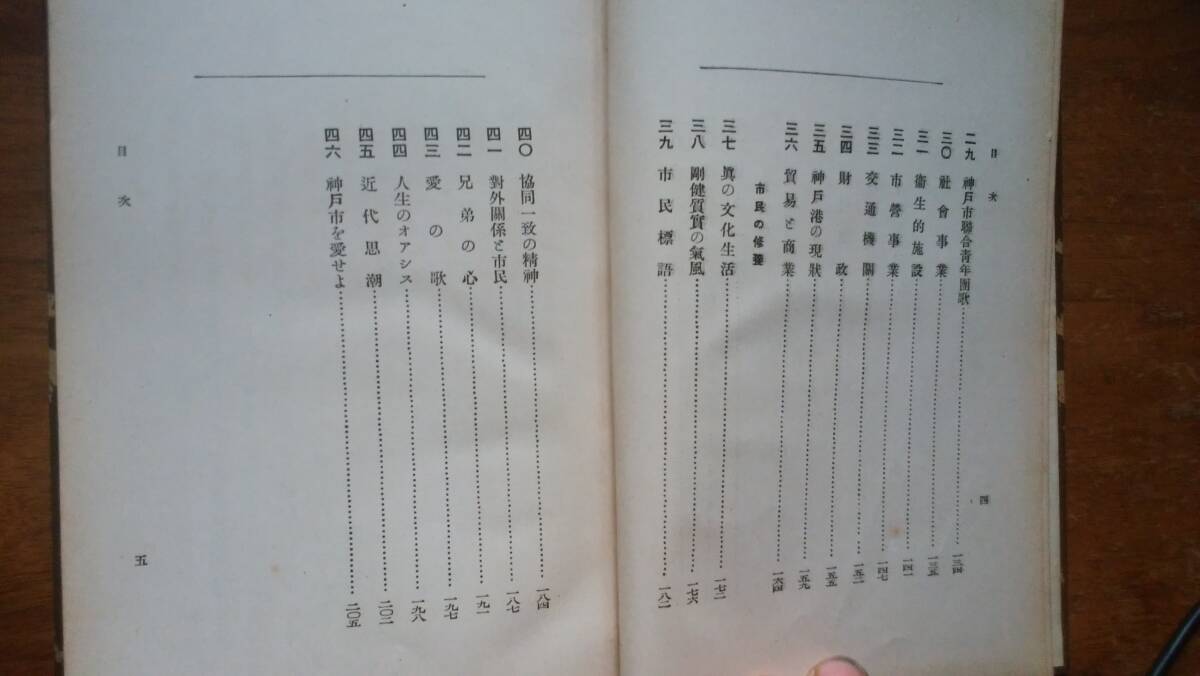 目次
四
二九 神戸市聯合青年團歌……一三四
三〇 社會事業……一三五
三一 衞生的施設……一四一
三二 市營事業……一四七
三三 交通機關……一五二
三四 財政……一五五
三五 神戸港の現狀……一五九
三六 貿易と商業……一六四
市民の修養
三七 眞の文化生活……一七二
三八 剛健質實の氣風……一七六
三九 市民標語……一八二
四〇 協同一致の精神……一八四
四一 對外關係と市民……一八七
四二 兄弟の心……一九一
四三 愛の歌……一九七
四四 人生のオアシス……一九八
四五 近代思潮……二〇二
四六 神戸市を愛せよ……二〇五
目次
五